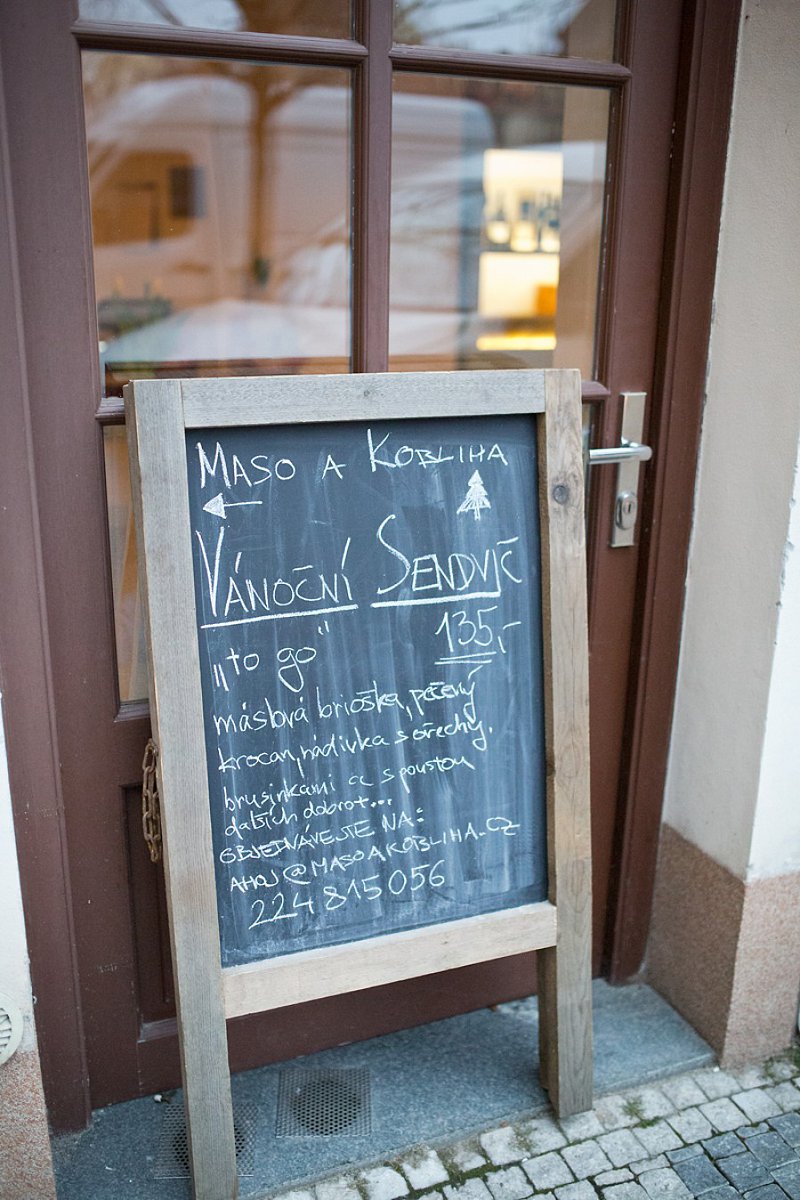 MASO A KOBLIHA
VÁNOČNÍ SENDVIČ
„to go" 135,-
máslová brioška, pečený
krocan, nádivka s ořechy,
brusinkami a s poustou
dalších dobrot...
OBJEDNÁVEJTE NA:
AHOJ@MASOAKOBLIHA.CZ
224 815 056